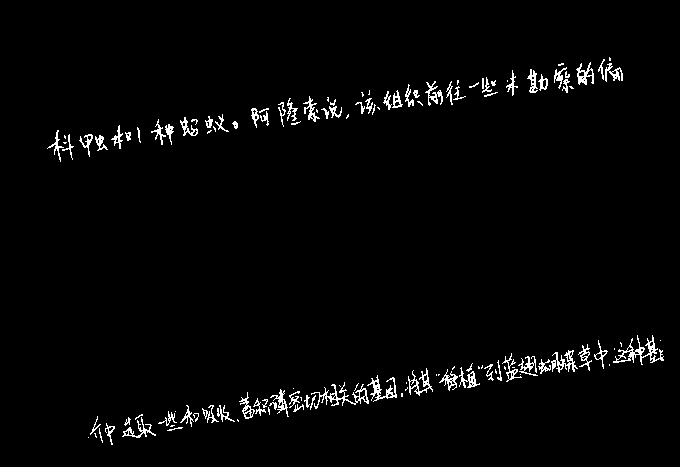 科甲虫和1种蚂蚁。阿隆索说,该组织前往一些未勘察的偏
介中选取一些和吸收、蓄积磷密切相关的基因,将其“移植”到蓝翅蝴蝶草中.这种基